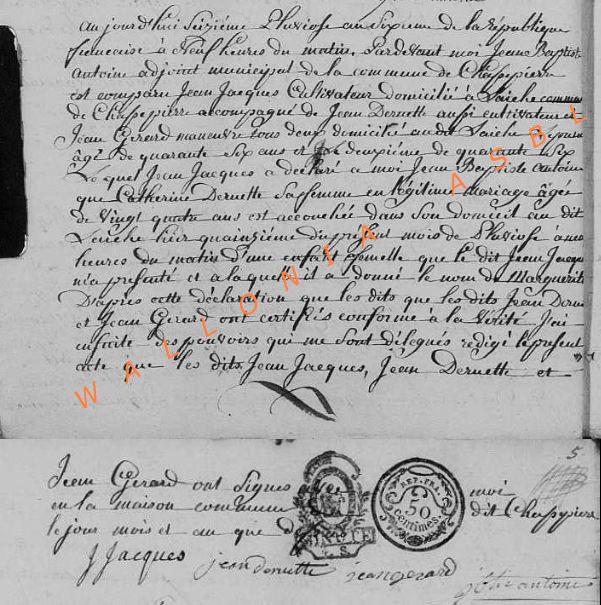 aujourd'hui Sizième Pluviose an Septieme de la république
française à Neuf heures du matin, Pardevant moi Jean Baptiste
Antoine adjoint municipal de la commune de Chassepierre
est comparu Jean Jacques Cultivateur domicilié à Laiche commune
de Chassepierre accompagné de Jean Dernette aussi cultivateur et
Jean Gerard maneuvre tous deux domicilié audit Laiche
âgé de quarante six ans et le deuxième de quarante six
Lequel Jean Jacques a déclaré a moi Jean Baptiste Antoine
que Catherine Dernette sa femme en légitime mariage âgé
de vingt quatre ans est accouchée dans son domicil au dit
Leiche hier quainzième du présent mois de Pluviose à onze
heures du matin d'une enfant femelle que le dit Jean Jacques
m'a présenté et a laquell il a donné le nom de Marguerite
D'après cette déclaration que les dits que les dits Jean Dernette
et Jean Gerard ont certifiés conforme à la vérité J'ai
ensuite des pouvoirs qui me sont délegués rédigé le présent
acte que les dits Jean Jacques, Jean Dernette et
WALLONIA ASBL
5
Jean Gerard ont signés moi
en la maison commune dit Chassepierre
le jour mois et an que d
REP. FRA.
50
centimes.
J Jacques jean dernette jean gerard
antoine